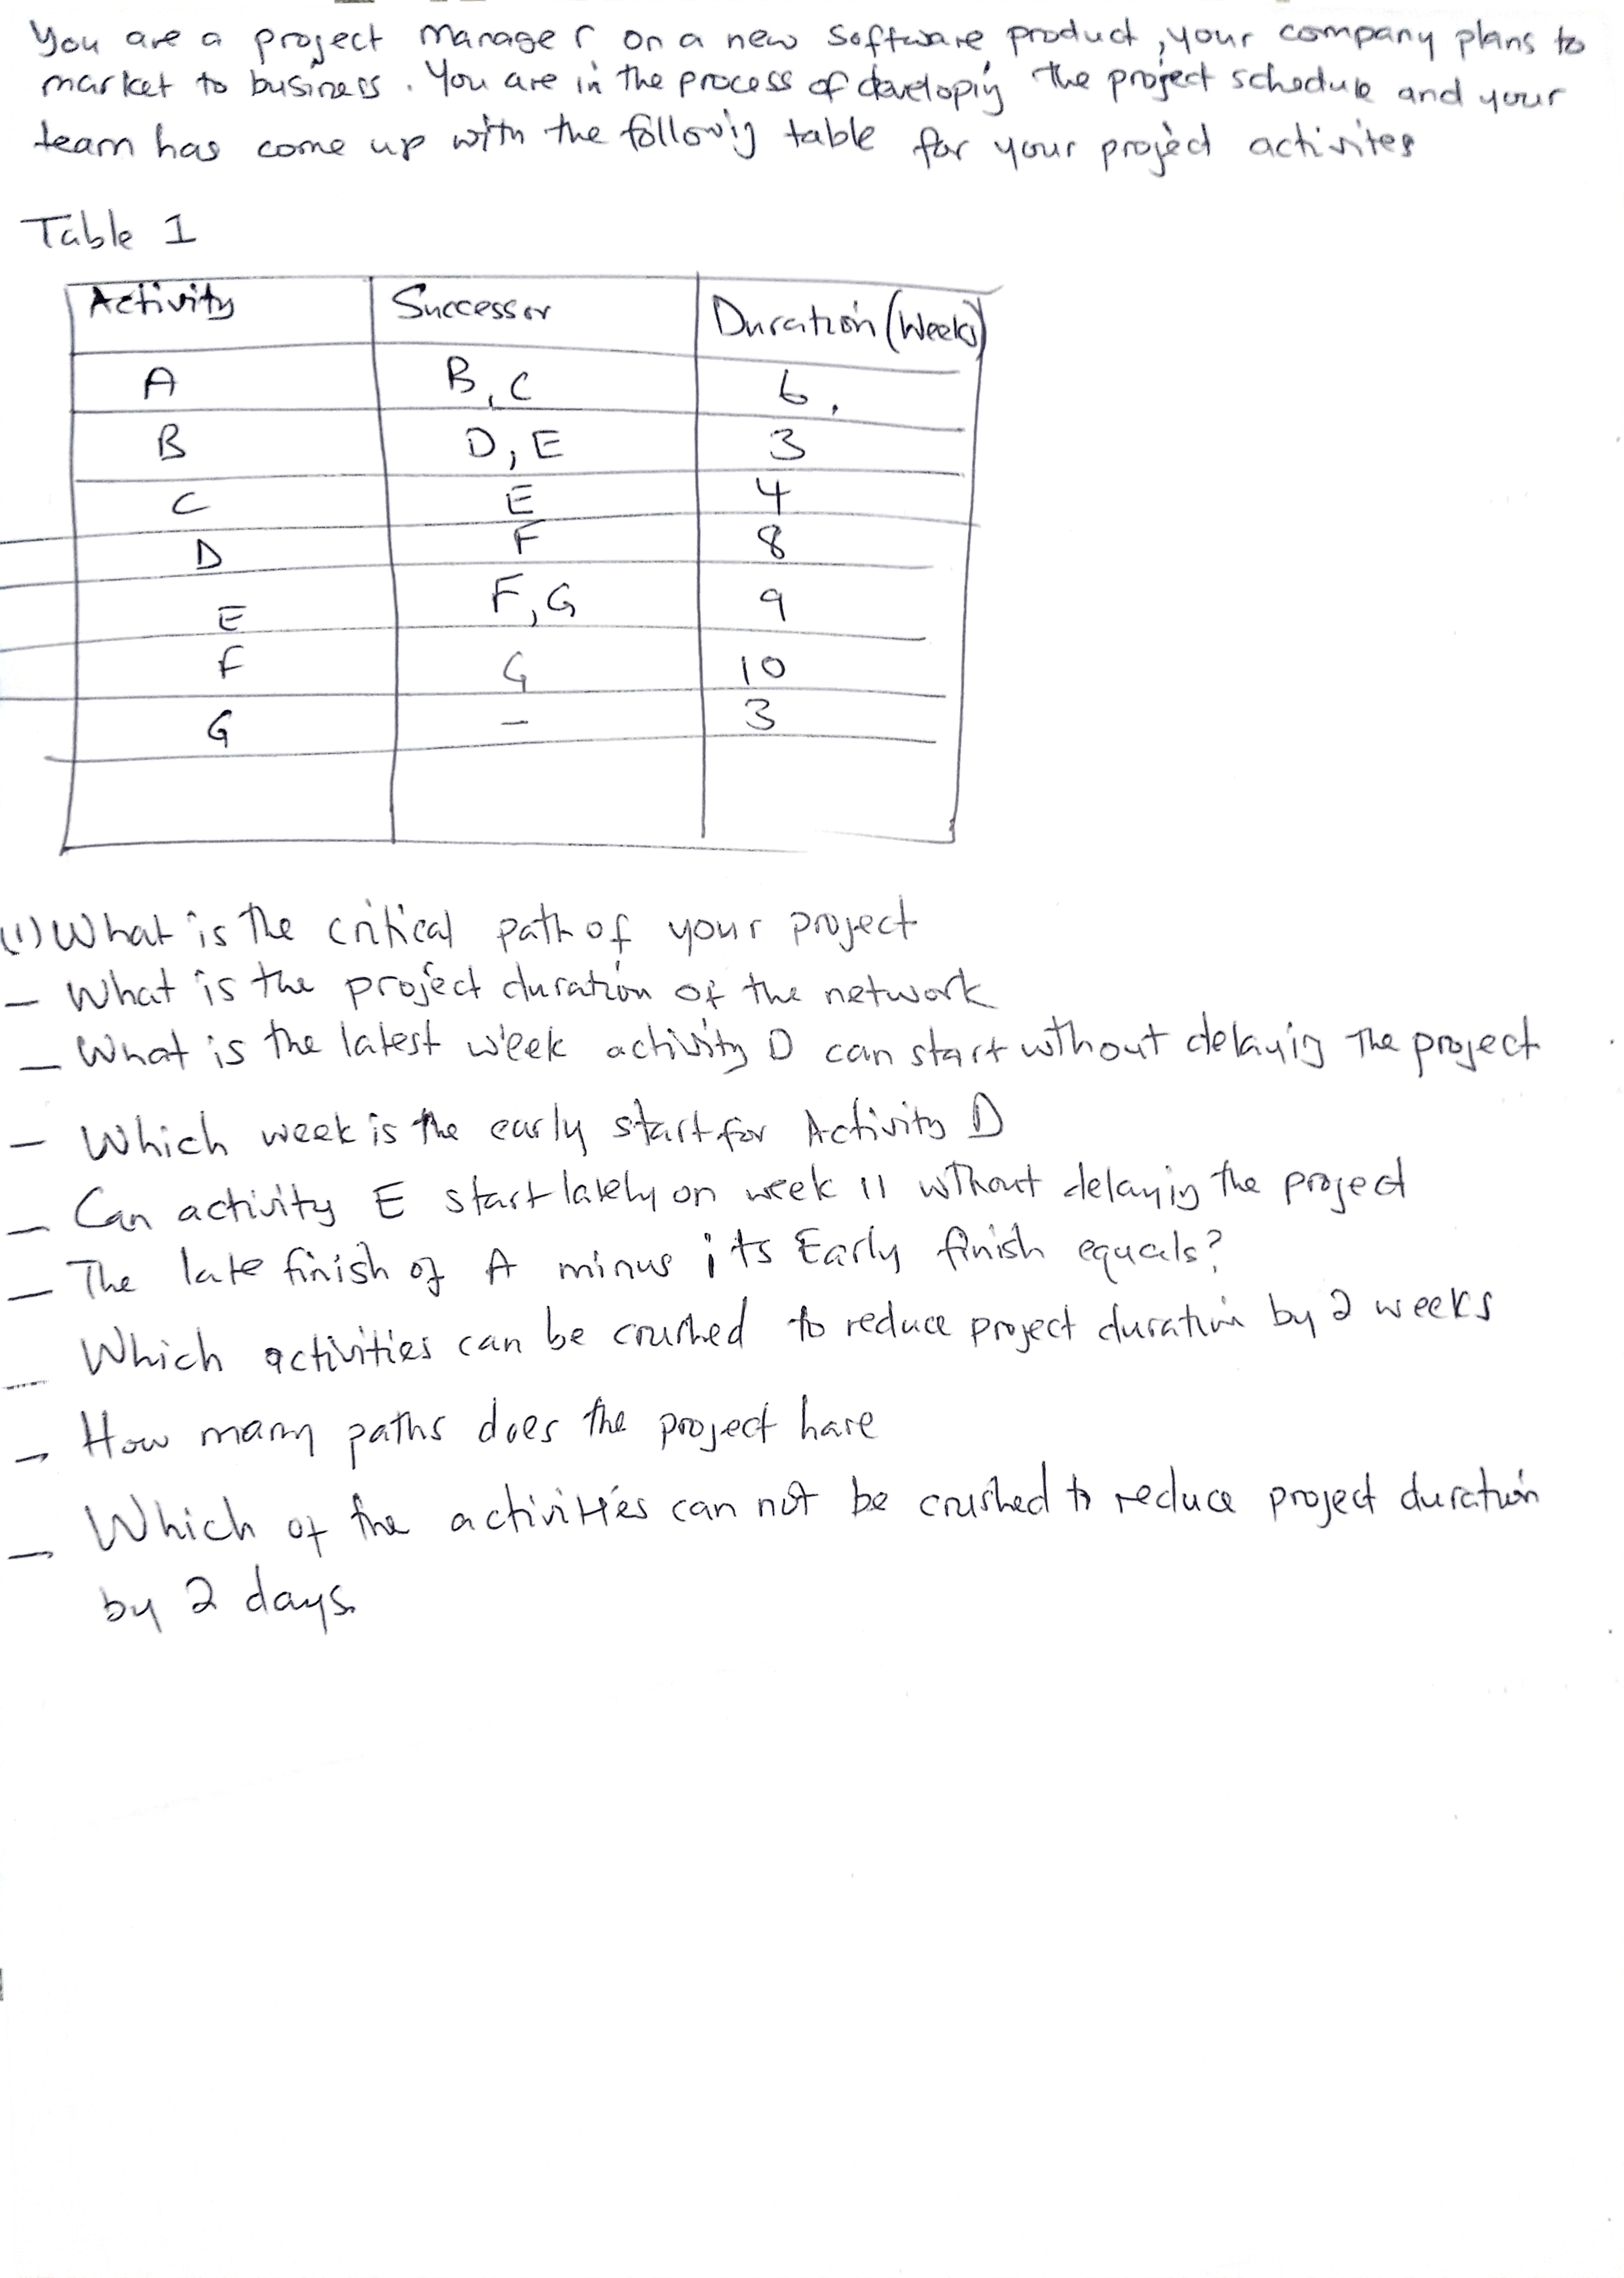 You are a project manager on a new software product, your company plans to
market to business. You are in the process of developing the project schedule and your
team has come up with the following table for your project activites
Table 1
Activity Successor Duration (Weeks)
A B, C 6
B D, E 3
C E 4
D F 8
E F, G 9
F G 10
G - 3
(1) What is the critical path of your project
- What is the project duration of the network
- What is the latest week activity D can start without delaying the project
- Which week is the early start for Activity D
- Can activity E start lately on week 11 without delaying the project
- The late finish of A minus its Early finish equals?
- Which activities can be crushed to reduce project duration by 2 weeks
- How many paths does the project have
- Which of the activities can not be crushed to reduce project duration
by 2 days.